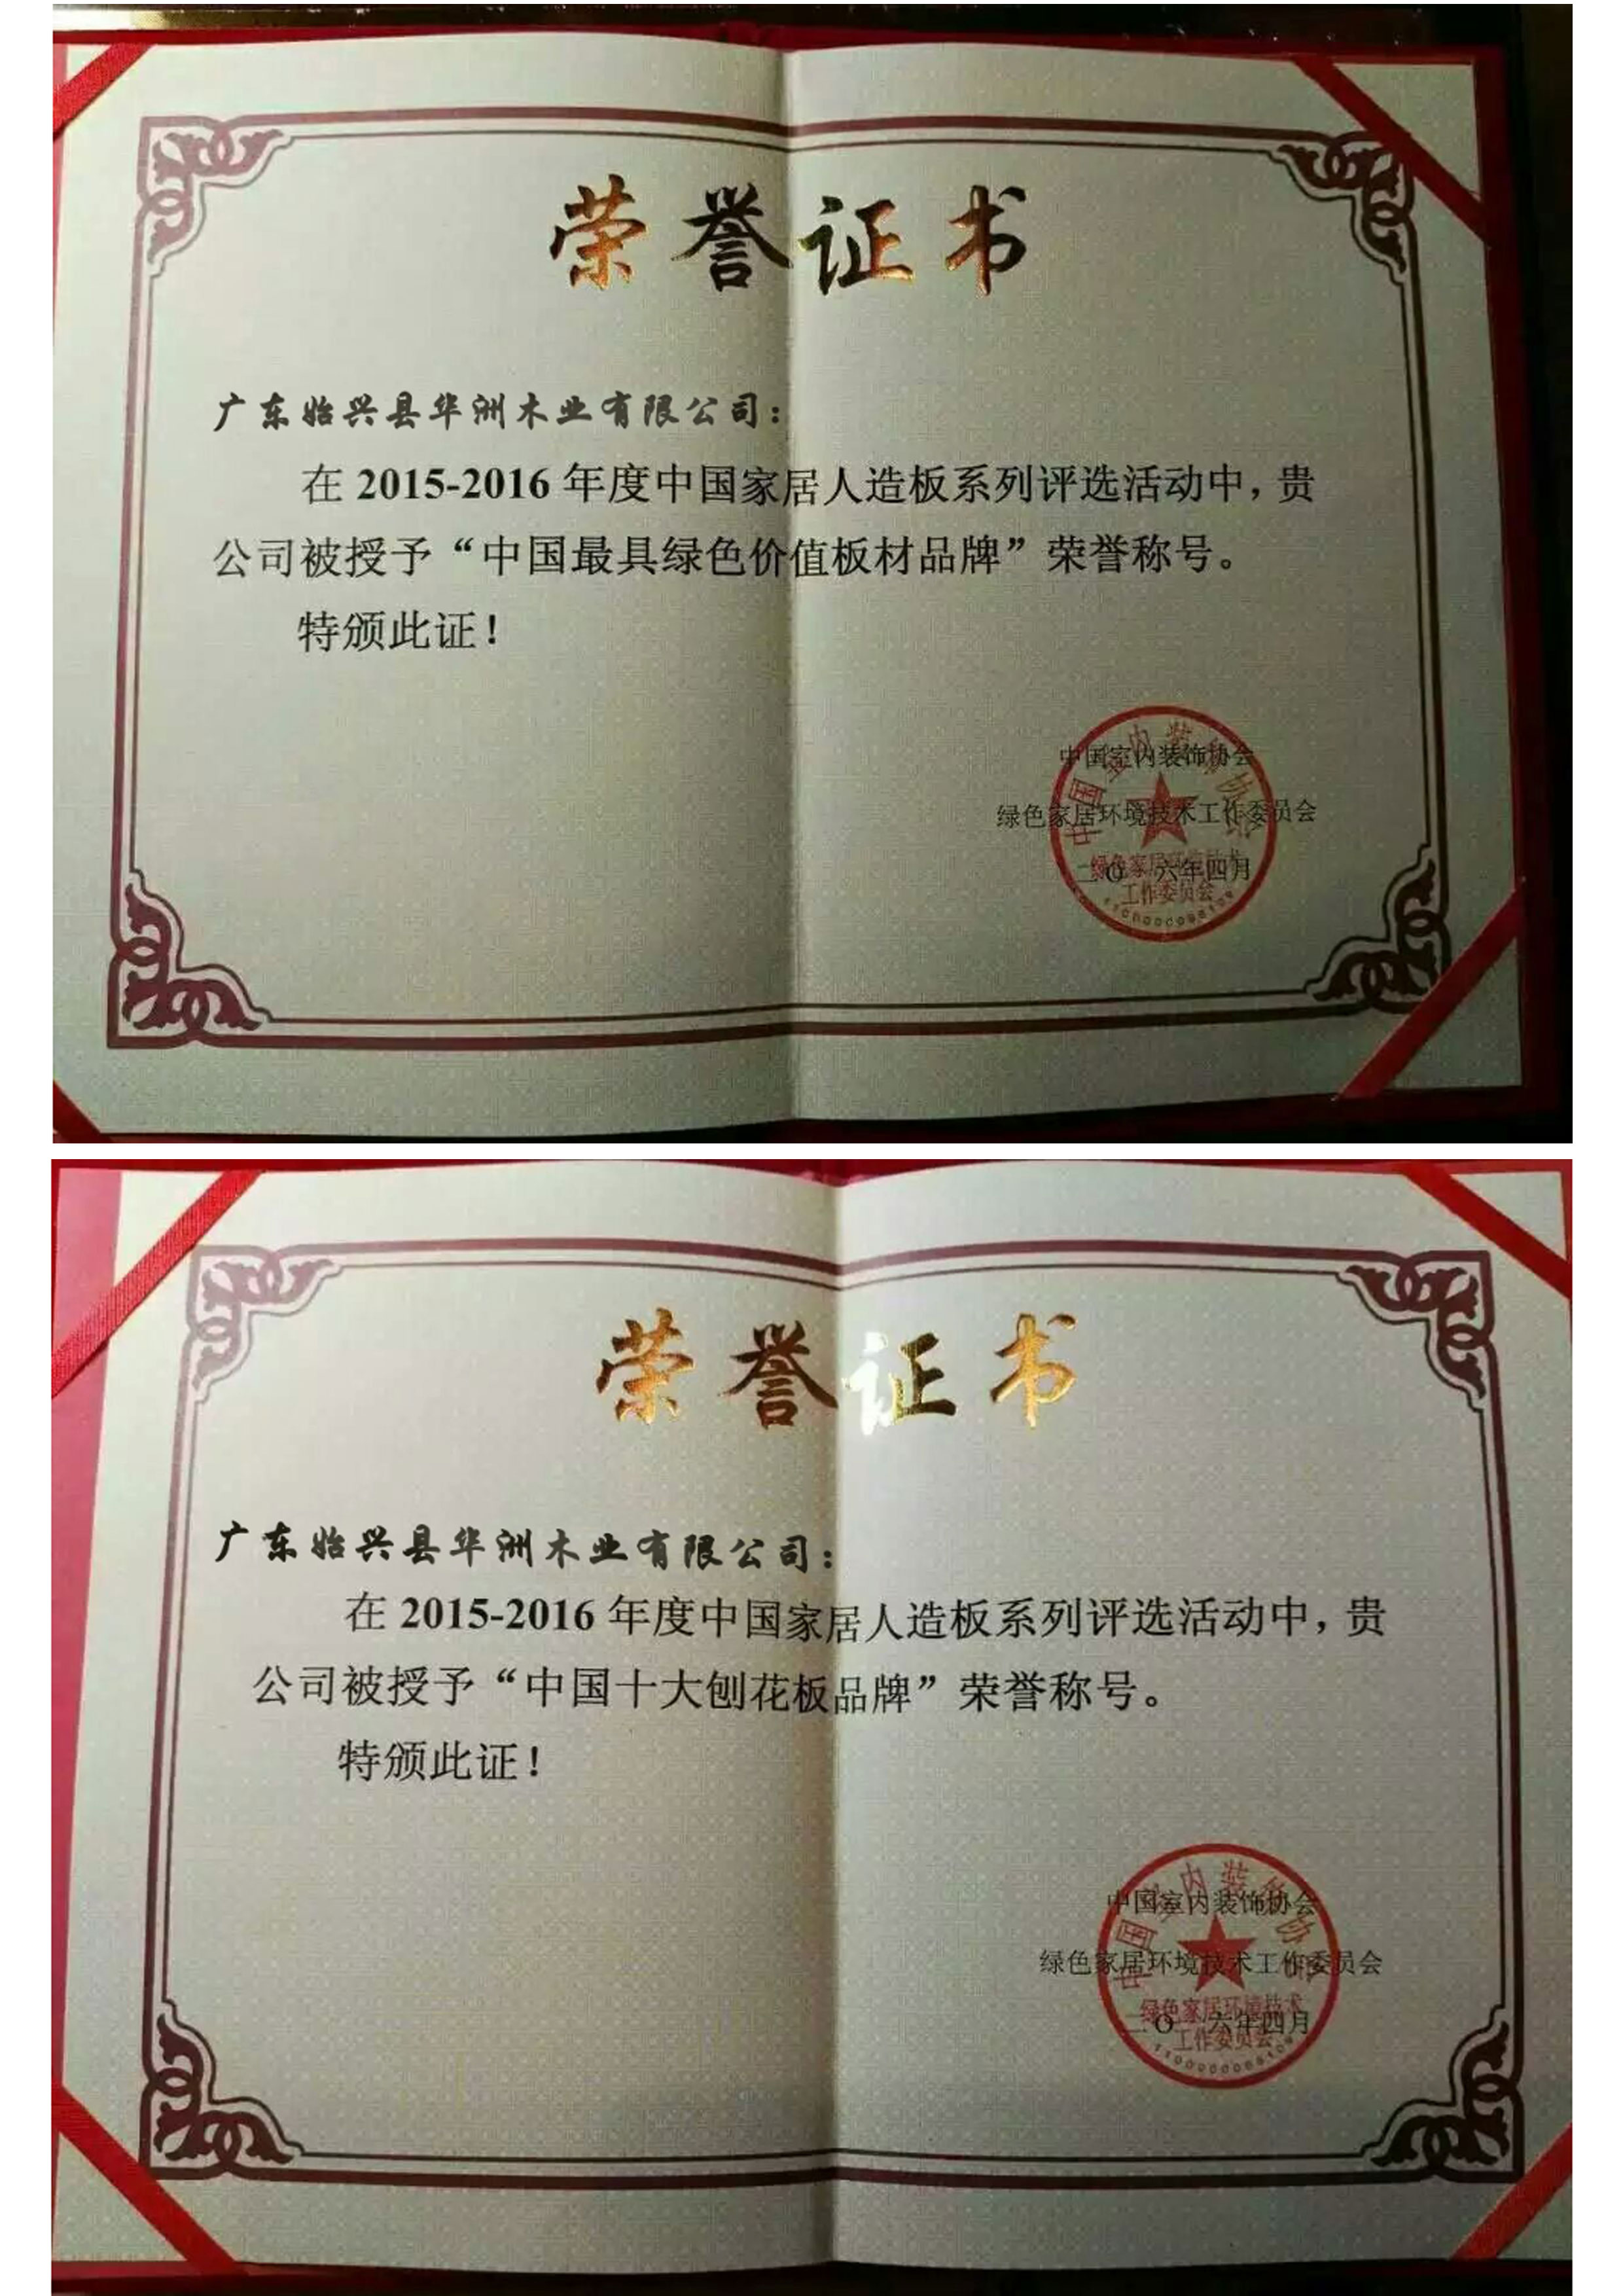 荣誉证书
广东始兴县华洲木业有限公司：
在 2015-2016 年度中国家居人造板系列评选活动中，贵
公司被授予“中国最具绿色价值板材品牌”荣誉称号。
特颁此证！
中国室内装饰协会
绿色家居环境技术工作委员会
二〇一六年四月
中国室内装饰协会
绿色家居环境技术
工作委员会
荣誉证书
广东始兴县华洲木业有限公司：
在 2015-2016 年度中国家居人造板系列评选活动中，贵
公司被授予“中国十大刨花板品牌”荣誉称号。
特颁此证！
中国室内装饰协会
绿色家居环境技术工作委员会
二〇一六年四月
中国室内装饰协会
绿色家居环境技术
工作委员会